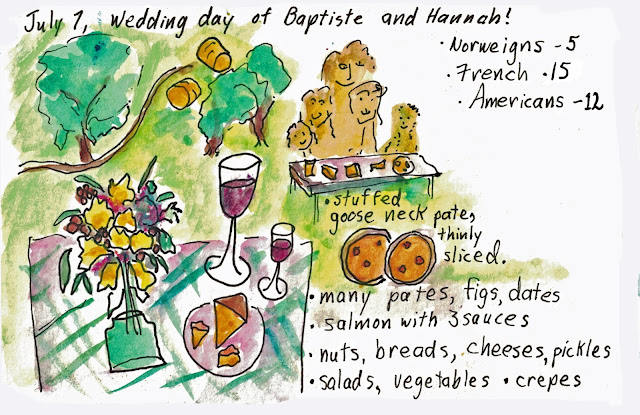 July 7, Wedding day of Baptiste and Hannah!
· Norweigns - 5
· French · 15
· Americans - 12
· stuffed
goose neck pate,
thinly
sliced.
· many pates, figs, dates
· salmon with 3 sauces
· nuts, breads, cheeses, pickles
· salads, vegetables · crepes